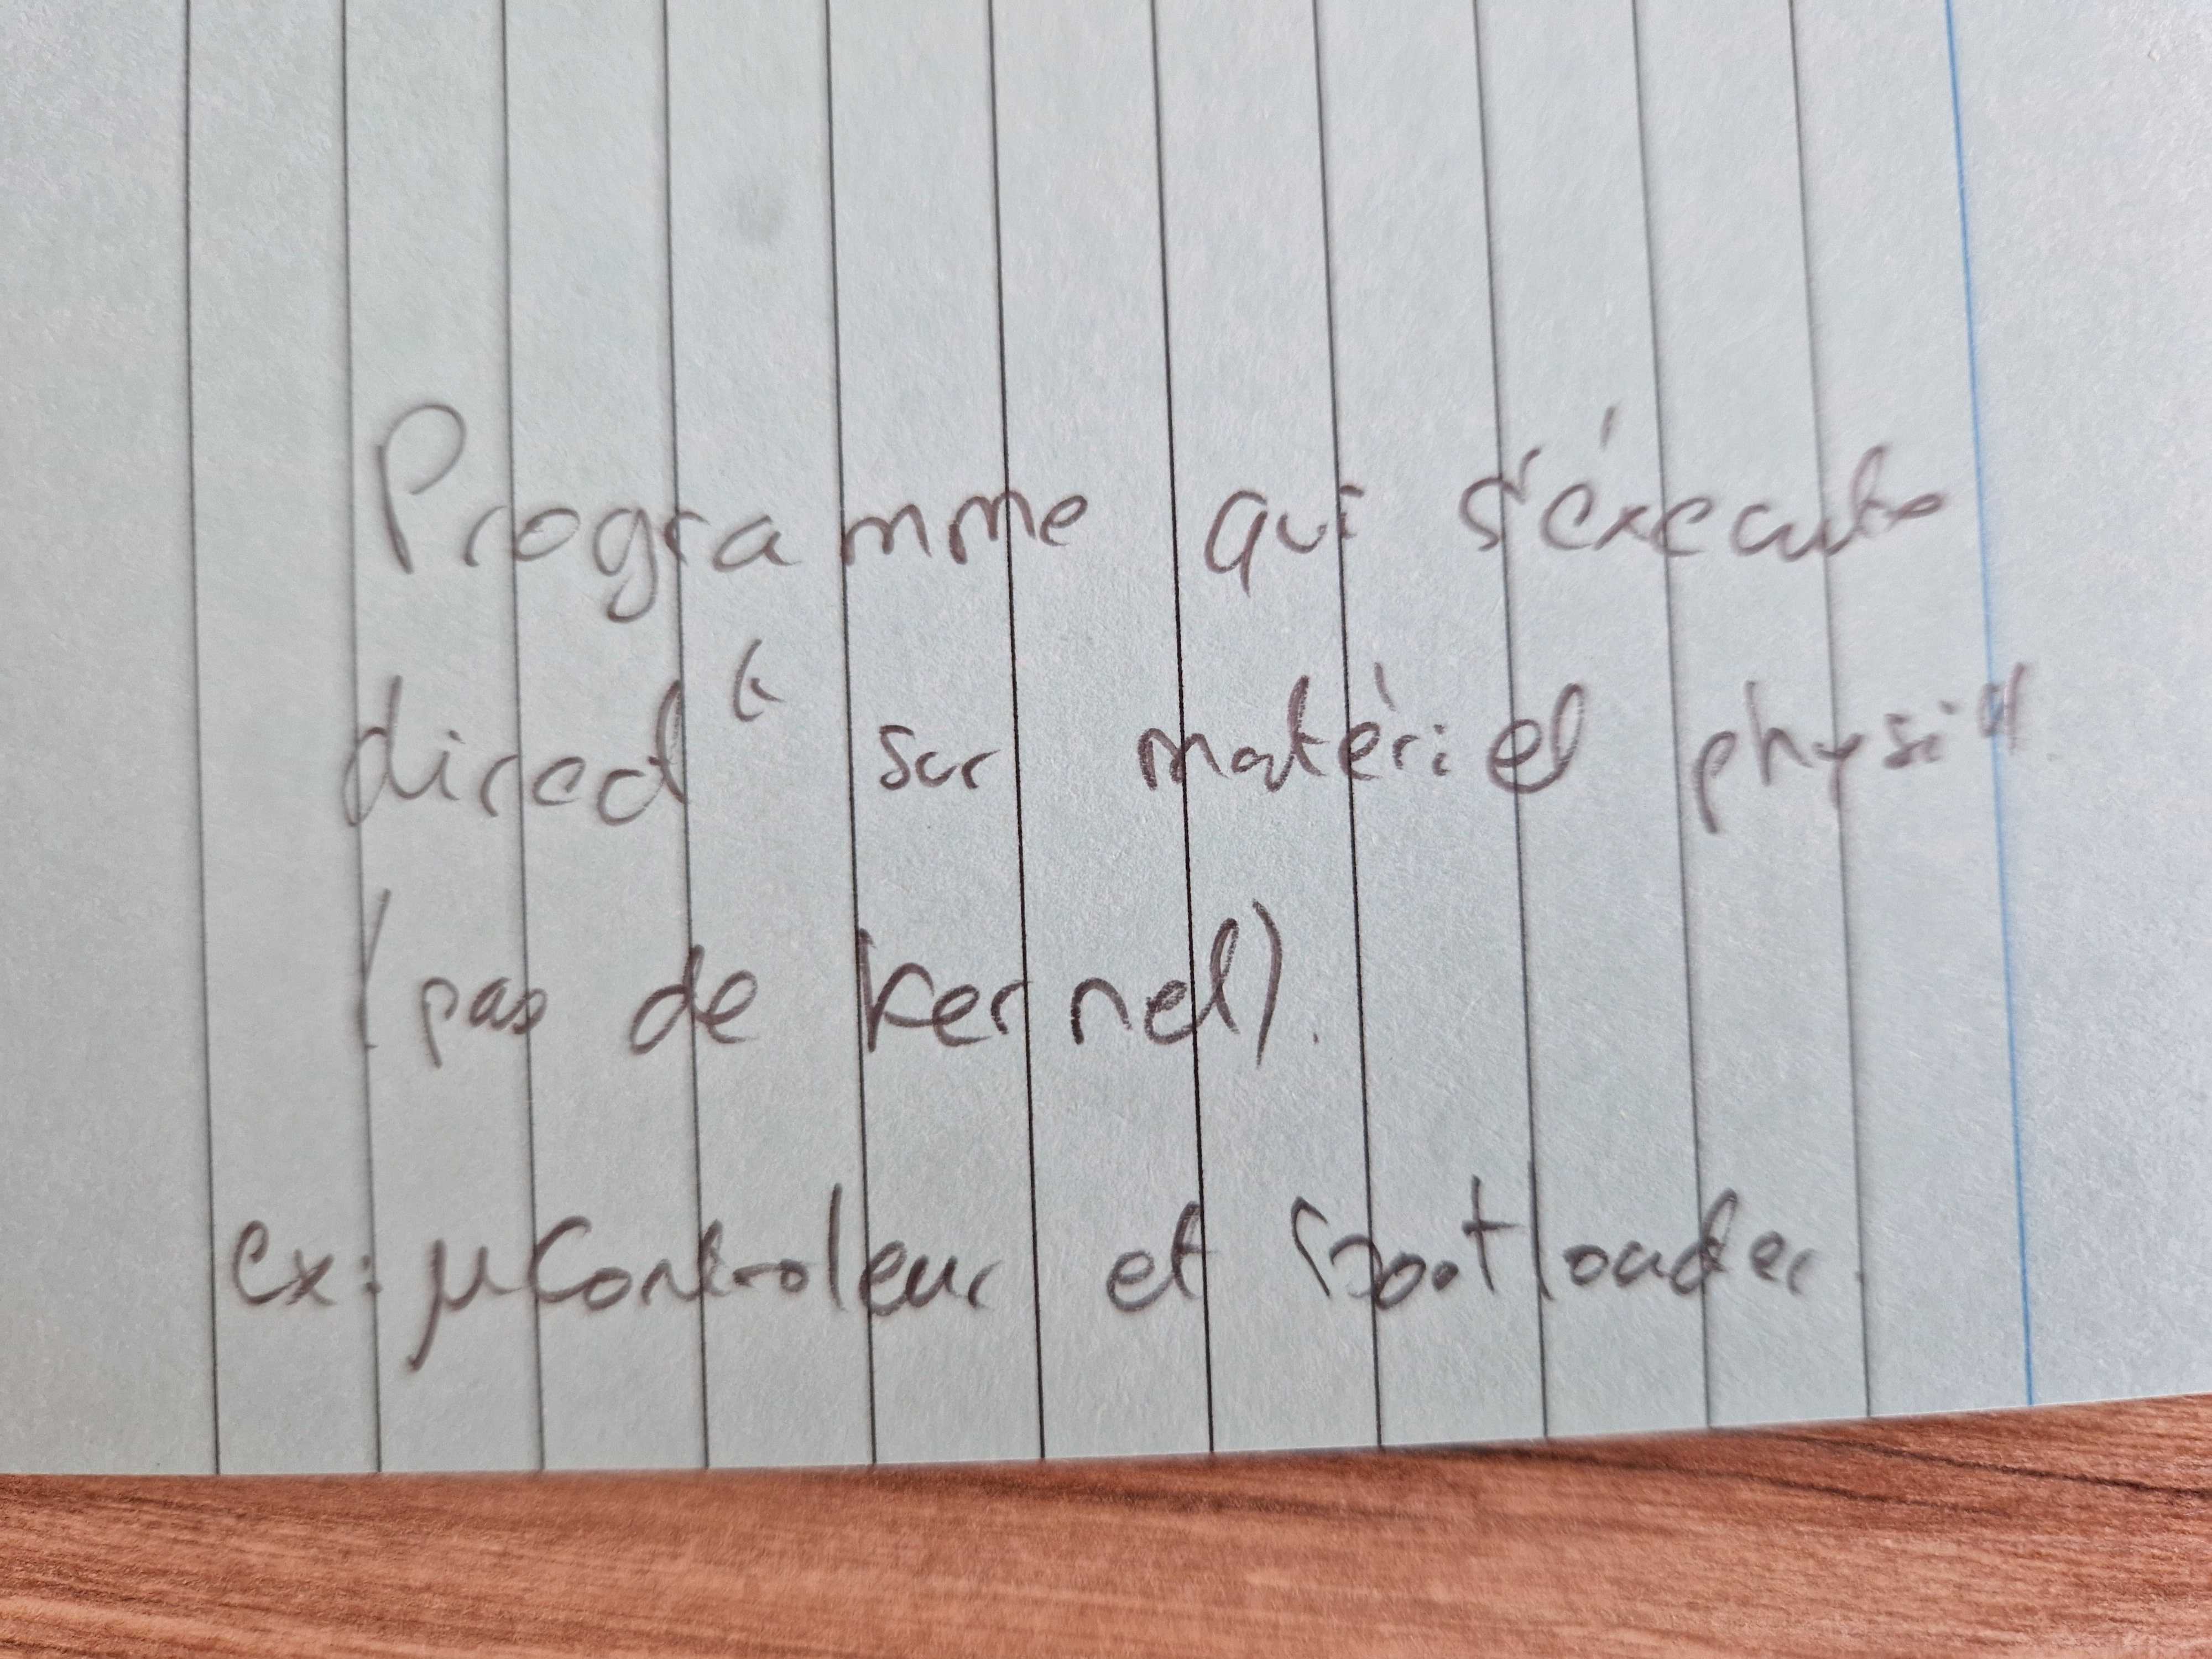 Programme qui s'exécute
direct^t sur matériel physi^q
(pas de kernel).
ex: µControleur et bootloader.